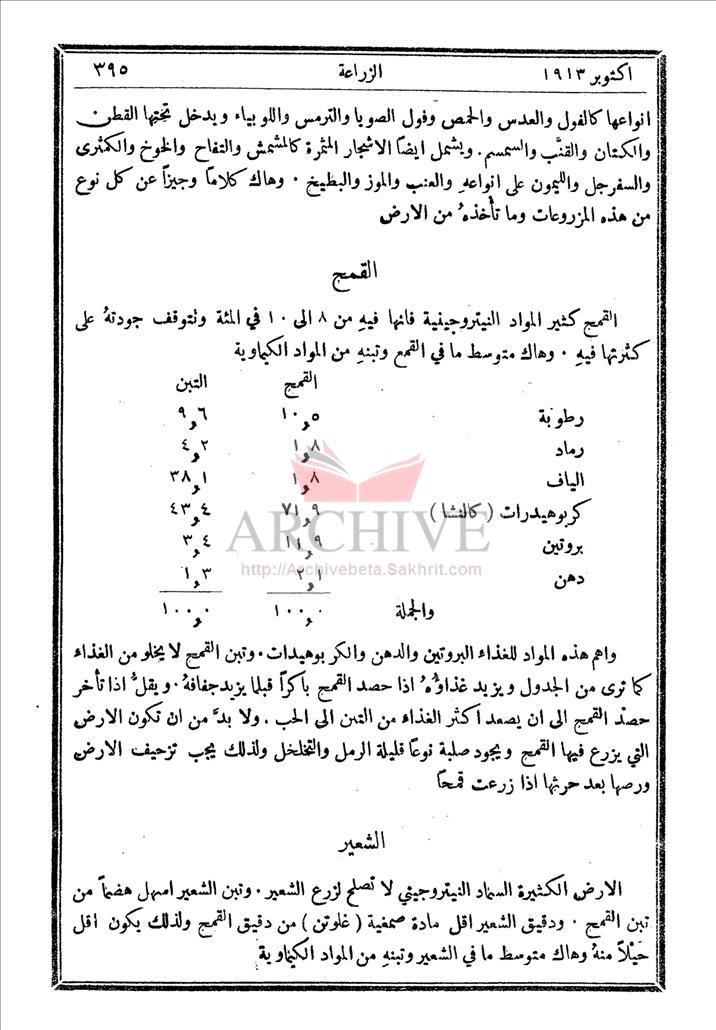 اكتوبر ١٩١٣ الزراعة ٣٩٥
انواعها كالفول والعدس والحمص وفول الصويا والترمس واللوبياء ويدخل تحتها القطن
والكتان والقنَّب والسمسم. ويشمل ايضاً الاشجار المثمرة كالمشمش والتفاح والخوخ والكمثرى
والسفرجل والليمون على انواعهِ والعنب والموز والبطيخ . وهاك كلاماً وجيزاً عن كل نوع
من هذه المزروعات وما تأخذهُ من الارض
القمح
القمح كثير المواد النيتروجينية فانها فيهِ من ٨ الى ١٠ في المئة وتتوقف جودتهُ على
كثرتها فيهِ . وهاك متوسط ما في القمح وتبنهِ من المواد الكيماوية
القمح التبن
رطوبة ١٠,٥ ٩,٦
رماد ١,٨ ٤,٢
الياف ١,٨ ٣٨,١
كربوهيدرات (كالنشا) ٧١,٩ ٤٣,٤
بروتين ١١,٩ ٣,٤
دهن ٢,١ ١,٣
والجملة ١٠٠,٠ ١٠٠,٠
ARCHIVE
http://Archivebeta.Sakhrit.com
واهم هذه المواد للغذاء البروتين والدهن والكربوهيدات . وتبن القمح لا يخلو من الغذاء
كما ترى من الجدول ويزيد غذاؤُهُ اذا حصد القمح باكراً قبلما يزيد جفافهُ . ويقلُّ اذا تأخر
حصد القمح الى ان يصعد اكثر الغذاء من التبن الى الحب . ولا بدَّ من ان تكون الارض
التي يزرع فيها القمح ويجود صلبة نوعاً قليلة الرمل والتخلخل ولذلك يجب تزحيف الارض
ورصها بعد حرثها اذا زرعت قمحاً
الشعير
الارض الكثيرة السماد النيتروجيني لا تصلح لزرع الشعير . وتبن الشعير اسهل هضماً من
تبن القمح . ودقيق الشعير اقل مادة صمغية (غلوتن) من دقيق القمح ولذلك يكون اقل
حَيْلاً منهُ وهاك متوسط ما في الشعير وتبنهِ من المواد الكيماوية